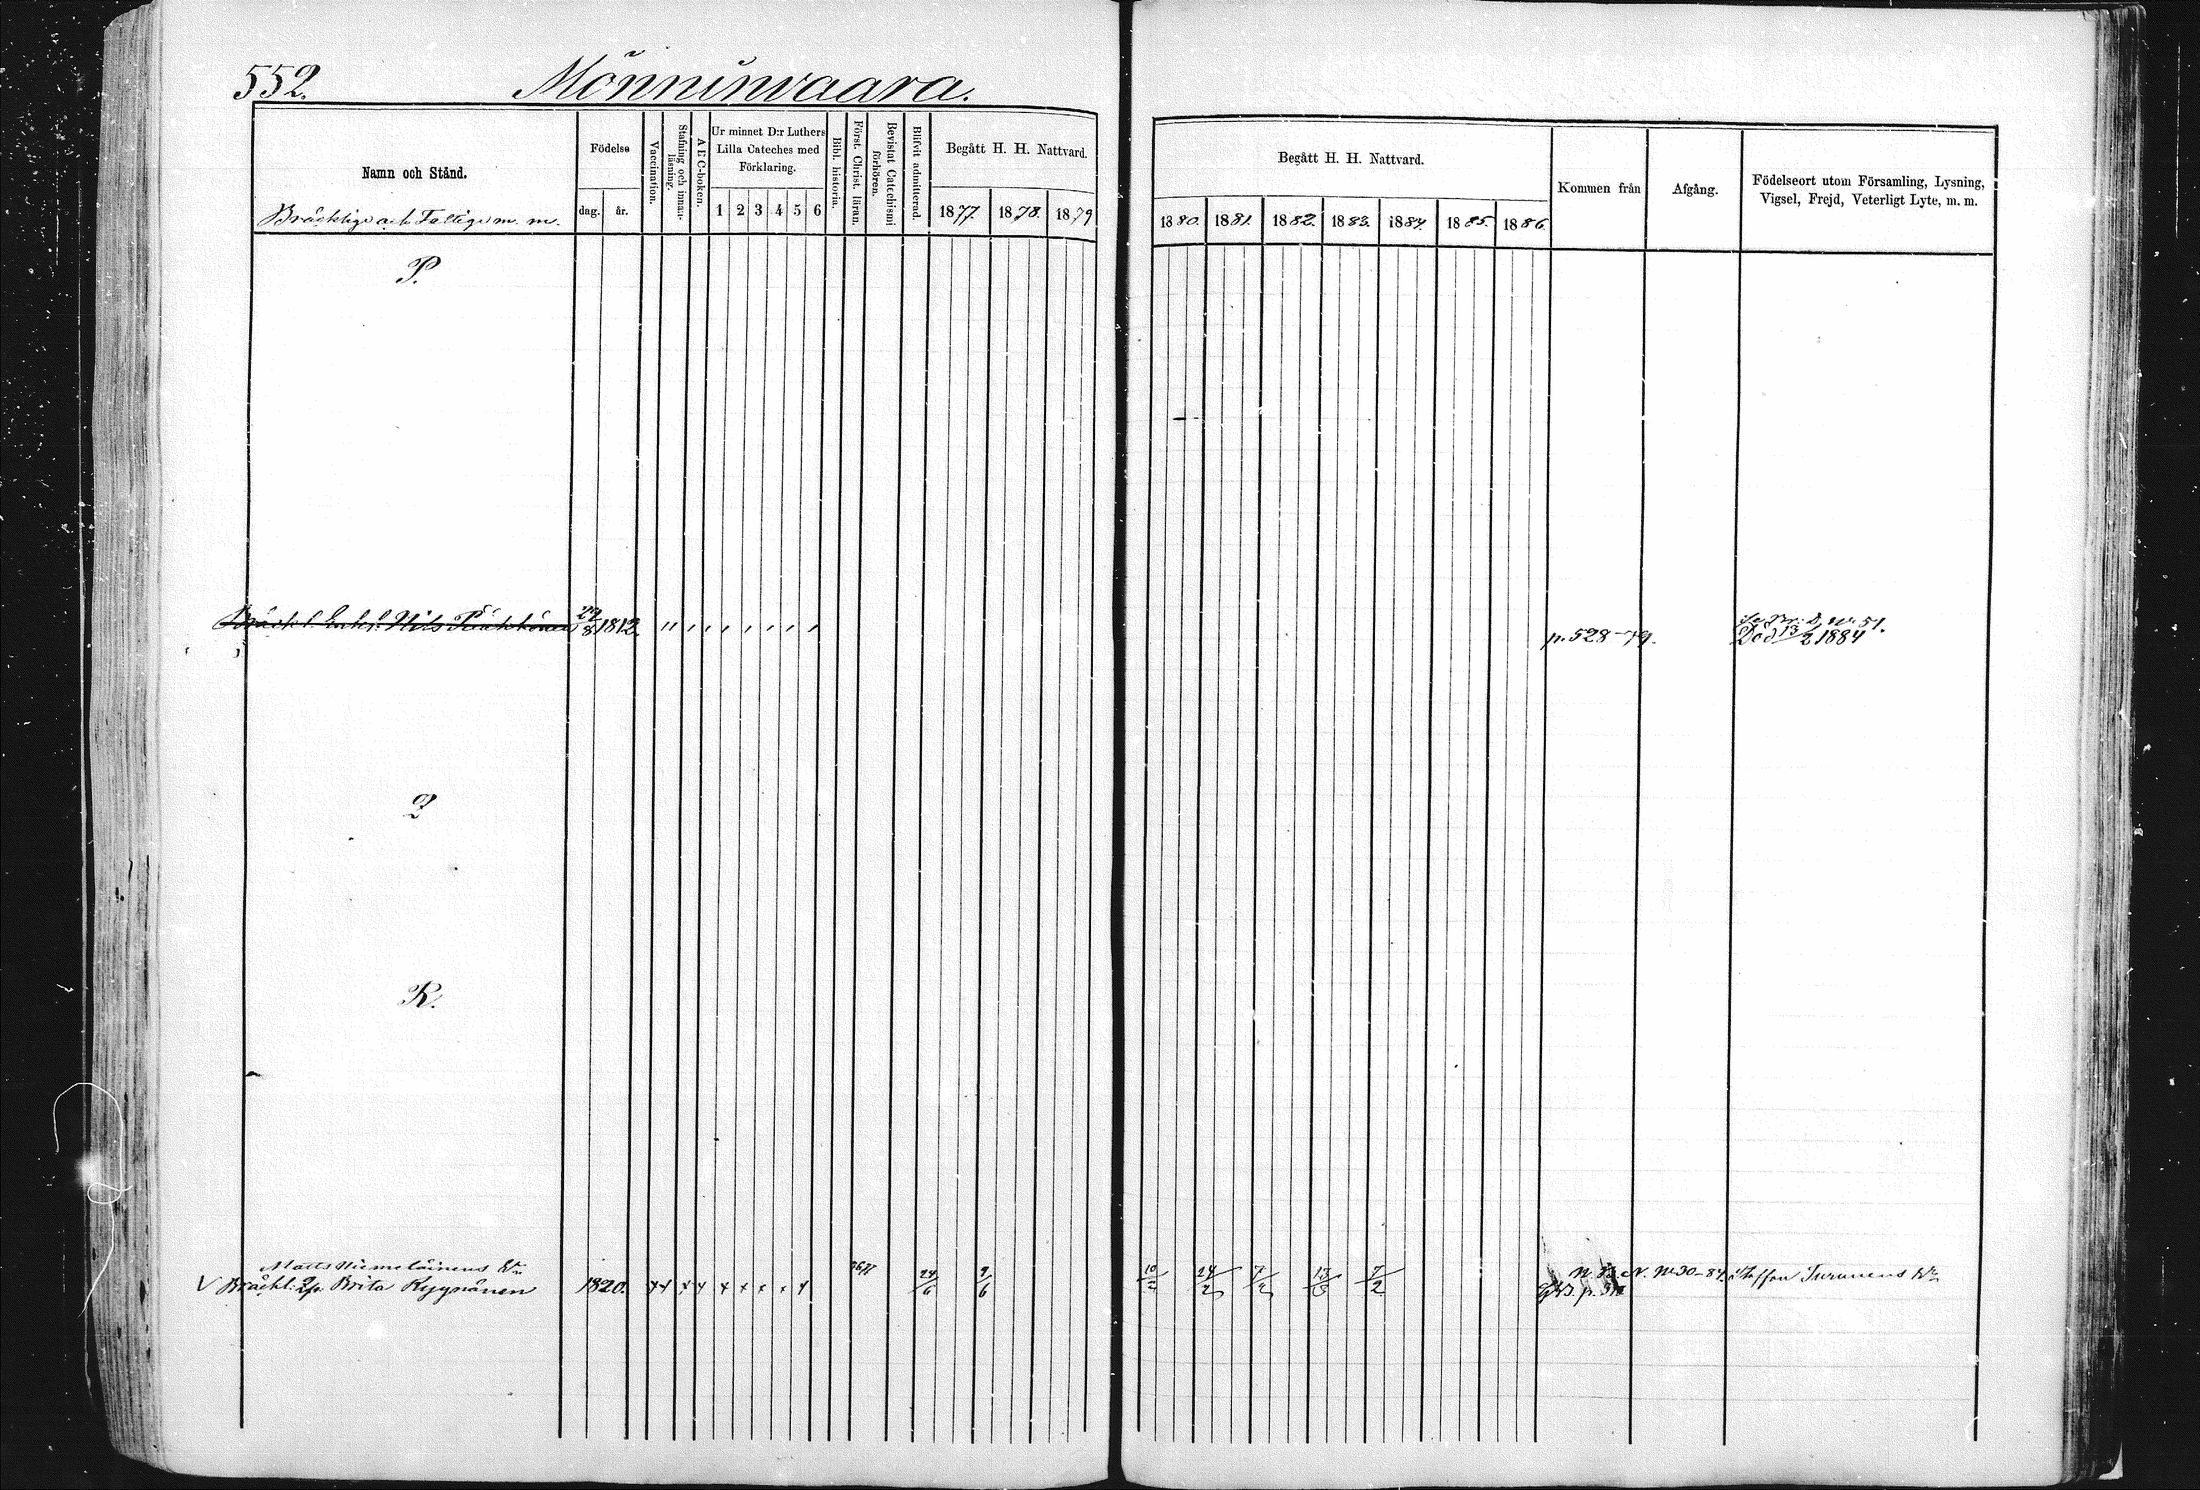 552.
Mönninvaara.
Namn och Stånd.
Bräcklige och Fattige m. m.
Födelse
dag. år.
Vaccination.
Stafning och innanläsning.
ABC-boken.
Ur minnet D:r Luthers
Lilla Cateches med
Förklaring.
1 2 3 4 5 6
Bibl. historia.
Först. Christ. läran.
Bevistat Catechismi förhören.
Blifvit admitterad.
Begått H. H. Nattvard.
1877. 1878. 1879
Begått H. H. Nattvard.
1880. 1881. 1882. 1883. 1884. 1885. 1886.
Kommen från
Afgång.
Födelseort utom Församling, Lysning,
Vigsel, Frejd, Veterligt Lyte, m. m.
P.
Bräckl. Enkl. Nils Räikkönen 27/8 1812. p. 528-79. Död 13/2 1884
Q
R.
Matts Niemeläinens Enka
V Bräckl. Brita Ryynänen 1820. 24/6 9/6 10/2 24/2 7/2 13/5 7/2 N. 30-84. Staffan Turunens